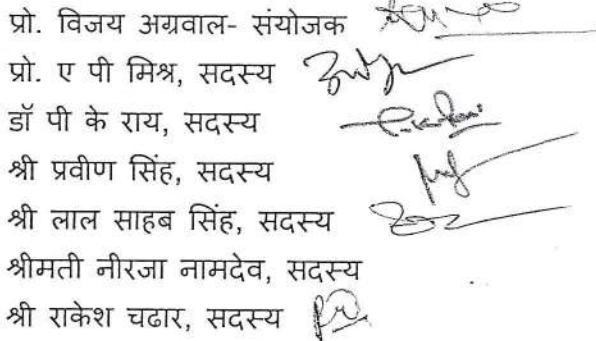 प्रो. विजय अग्रवाल- संयोजक
प्रो. ए पी मिश्र, सदस्य
डॉ पी के राय, सदस्य
श्री प्रवीण सिंह, सदस्य
श्री लाल साहब सिंह, सदस्य
श्रीमती नीरजा नामदेव, सदस्य
श्री राकेश चढार, सदस्य